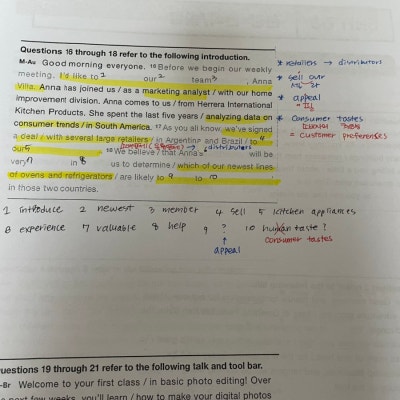 Questions 16 through 18 refer to the following introduction.
M-Au Good morning everyone. 16 Before we begin our weekly
meeting, I'd like to 1 our 2 team 3, Anna
Villa. Anna has joined us / as a marketing analyst / with our home
improvement division. Anna comes to us / from Herrera International
Kitchen Products. She spent the last five years / analyzing data on
consumer trends / in South America. 17 As you all know, we've signed
a deal / with several large retailers / in Argentina and Brazil / to 4
our 5 . → distributors
18 We believe / that Anna's 6 will be
very 7 in 8 us to determine / which of our newest lines
of ovens and refrigerators / are likely to 9 to 10
in those two countries.
* retailers → distributors
* sell our
* appeal
* consumer tastes
= customer preferences
1 introduce 2 newest 3 member 4 sell 5 kitchen appliances
6 experience 7 valuable 8 help 9 ? 10 human taste?
↑
appeal
consumer tastes
uestions 19 through 21 refer to the following talk and tool bar.
-Br Welcome to your first class / in basic photo editing! Over
next few weeks, you'll learn / how to make your digital photos